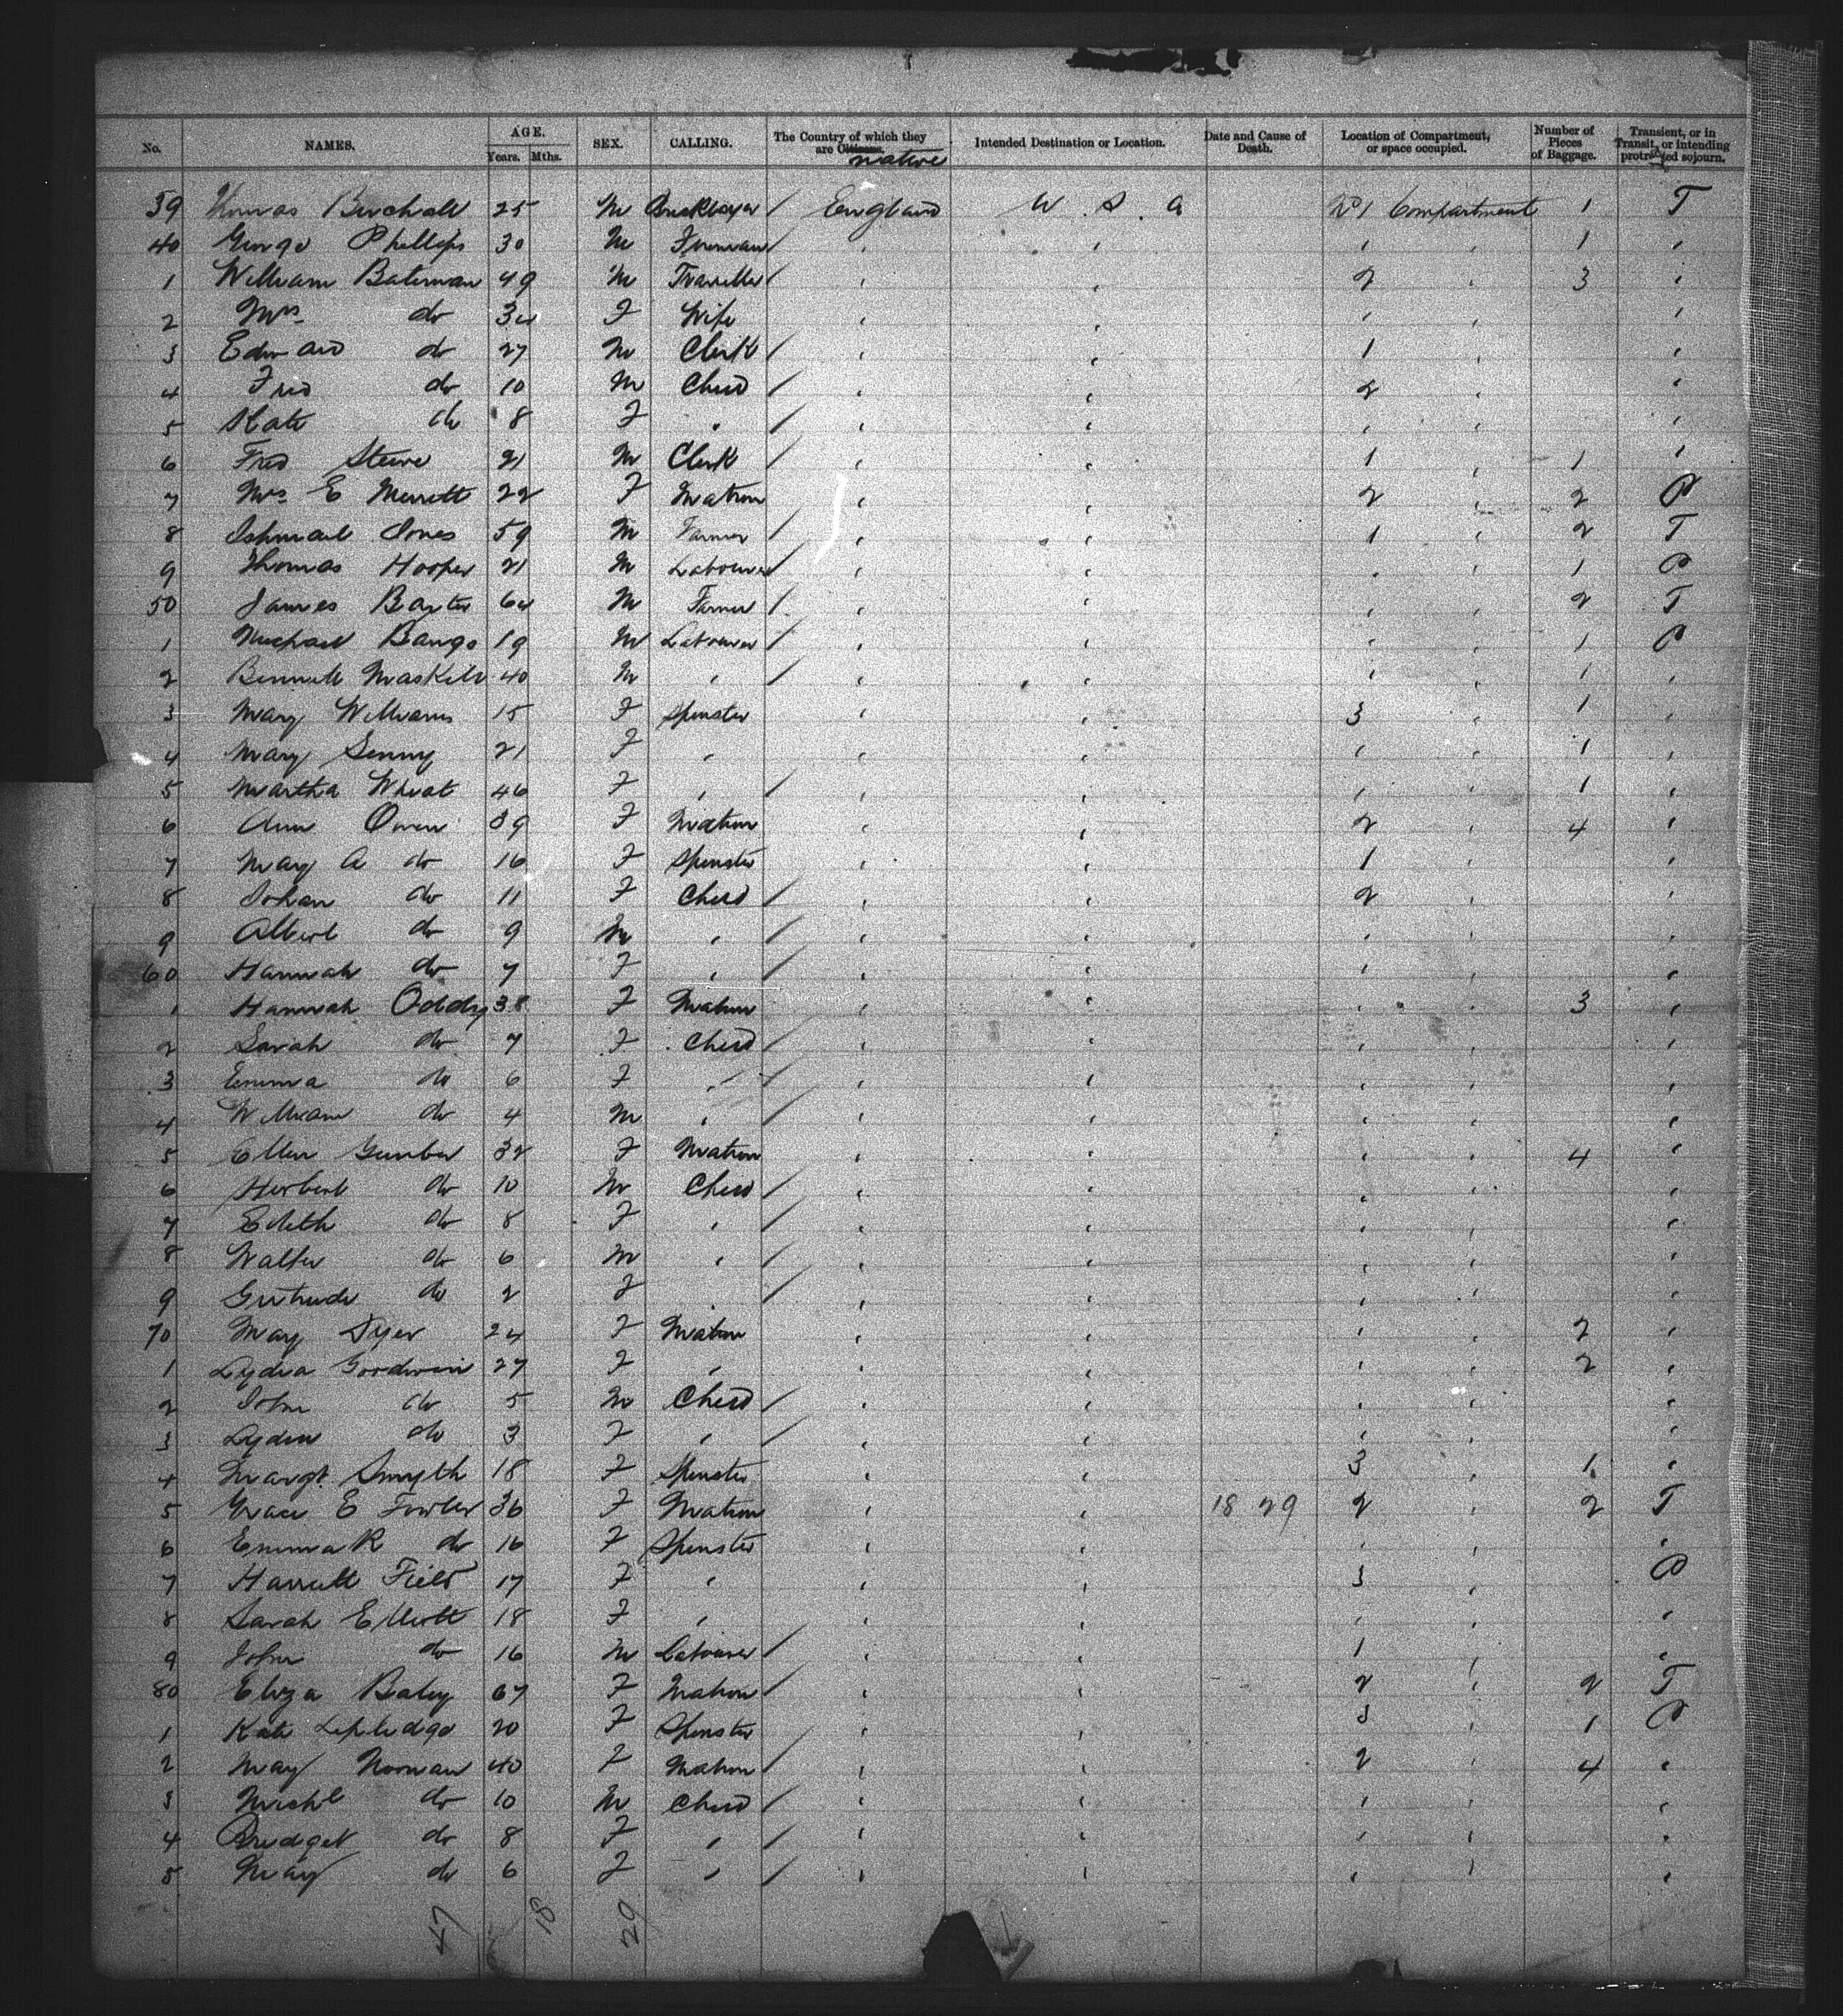 No. NAMES. AGE. Years. Mths. SEX. CALLING. The Country of which they are Citizens. native Intended Destination or Location. Date and Cause of Death. Location of Compartment, or space occupied. Number of Pieces of Baggage. Transient, or in Transit, or intending protracted sojourn.
39 Thomas Birchall 25 M Bricklayer / England U. S. A No 1 Compartment 1 T
40 George Phillips 30 M Fireman / " " " " 1 "
1 William Bateman 49 M Traveller / " " 2 " 3 "
2 Mrs do 34 F Wife " " " " "
3 Edward do 27 M Clerk / " " 1 "
4 Fred do 10 M Child / " " 2 " "
5 Kate do 8 F " / " " " " "
6 Fred 21 M Clerk / " " 1 " 1 "
7 Mrs E Merrett 22 F Matron " " 2 " 2 P
8 Ishmael Jones 59 M Farmer / " " 1 " 2 T
9 Thomas Hooper 21 M Labourer / " " " " 1 P
50 James Baxter 64 M Farmer / " " " " 2 T
1 Michael Bangs 19 M Labourer / " " " " 1 P
2 Bennett Maskell 40 M " / " " " " 1 "
3 Mary Williams 15 F Spinster " " 3 " 1 "
4 Mary 21 F " " " " " 1 "
5 Martha Wheat 46 F " / " " " " 1 "
6 Ann Owen 39 F Matron " " 2 " 4 "
7 Mary A do 16 F Spinster " " 1 " "
8 Johan do 11 F Child / " " 2 " "
9 Albert do 9 M " / " " " " "
60 Hannah do 7 F " / " " " " "
1 Hannah Oddy 38 F Matron " " " " 3 "
2 Sarah do 7 F Child / " " " " "
3 Emma do 6 F " / " " " " "
4 William do 4 M " / " " " " "
5 Ellen 32 F Matron " " " " 4 "
6 Herbert do 10 M Child / " " " " "
7 Edith do 8 F " / " " " " "
8 Walter do 6 M " / " " " " "
9 Gertrude do 2 F " / " " " " "
70 May Dyer 24 F Matron " " " " 2 "
1 Lydia Goodwin 27 F " " " " " 2 "
2 John do 5 M Child / " " " " "
3 Lydia do 3 F " / " " " " "
4 Margt. Smyth 18 F Spinster " " 3 " 1 "
5 Grace E Fowler 36 F Matron " " 18 29 2 " 2 T
6 Emma R do 16 F Spinster " " " " "
7 Harriett Field 17 F " " " 3 " P
8 Sarah Elliott 18 F " " " " " "
9 John do 16 M Labourer / " " 1 " "
80 Eliza Baley 67 F Matron / " " 2 " 2 T
1 Kate 20 F Spinster " " 3 " 1 P
2 May Norman 40 F Matron / " " 2 " 4 "
3 Michl do 10 M Child / " " " " "
4 Bridget do 8 F " / " " " " "
5 May do 6 F " / " " " " "
47 18 29